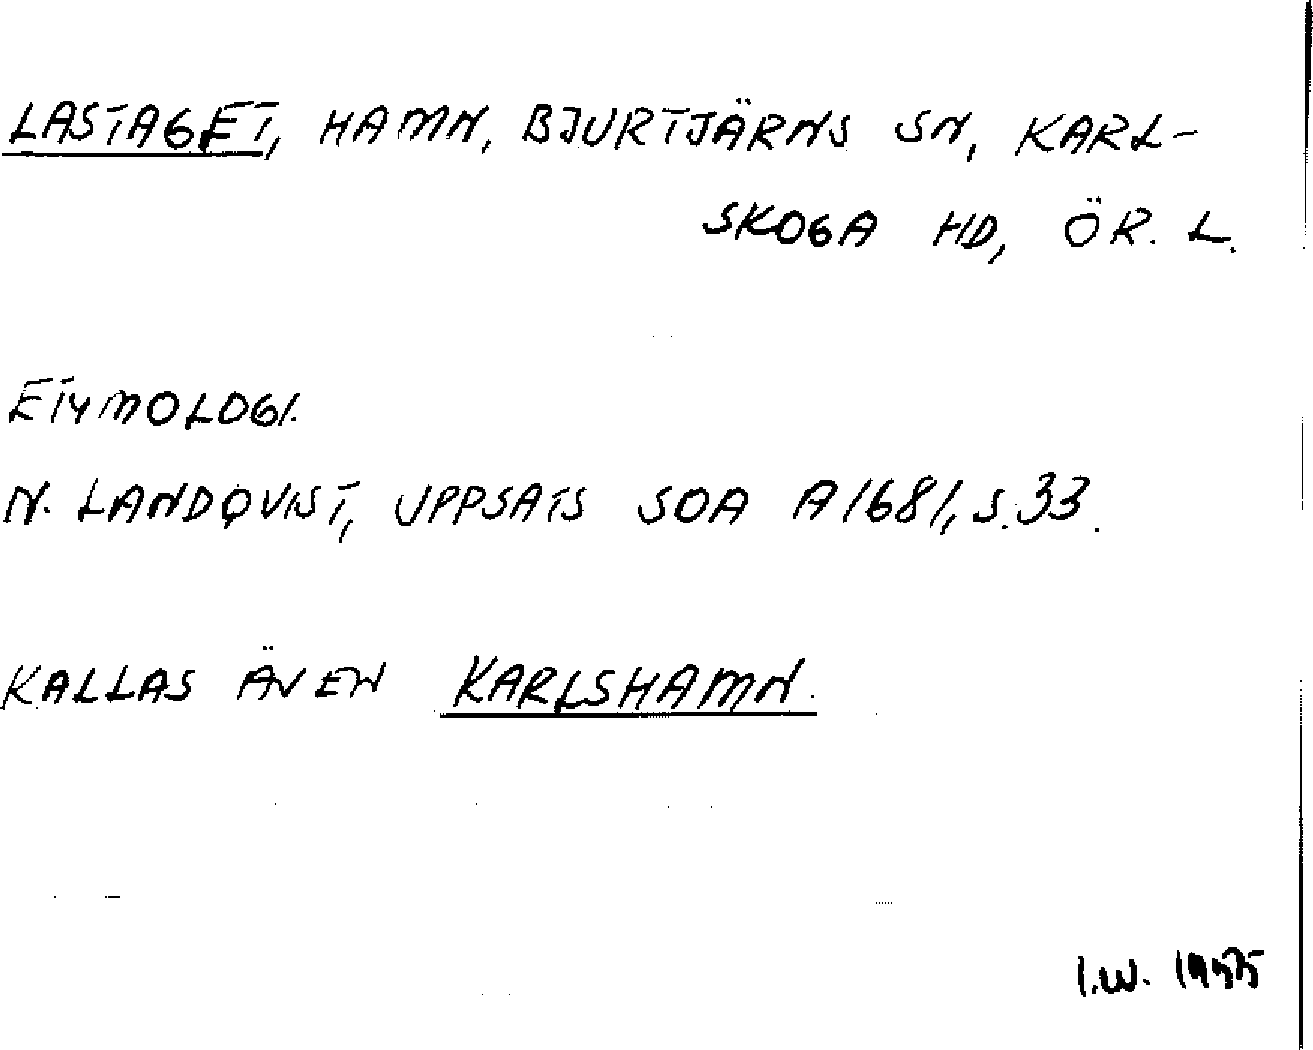 LASTAGET, HAMN, BJURTJÄRNS SN, KARL-
SKOGA HD, ÖR. L.
ETYMOLOGI.
N. LANDQVIST, UPPSATS SOA A1681, S. 33.
KALLAS ÄVEN KARLSHAMN.
I.W.